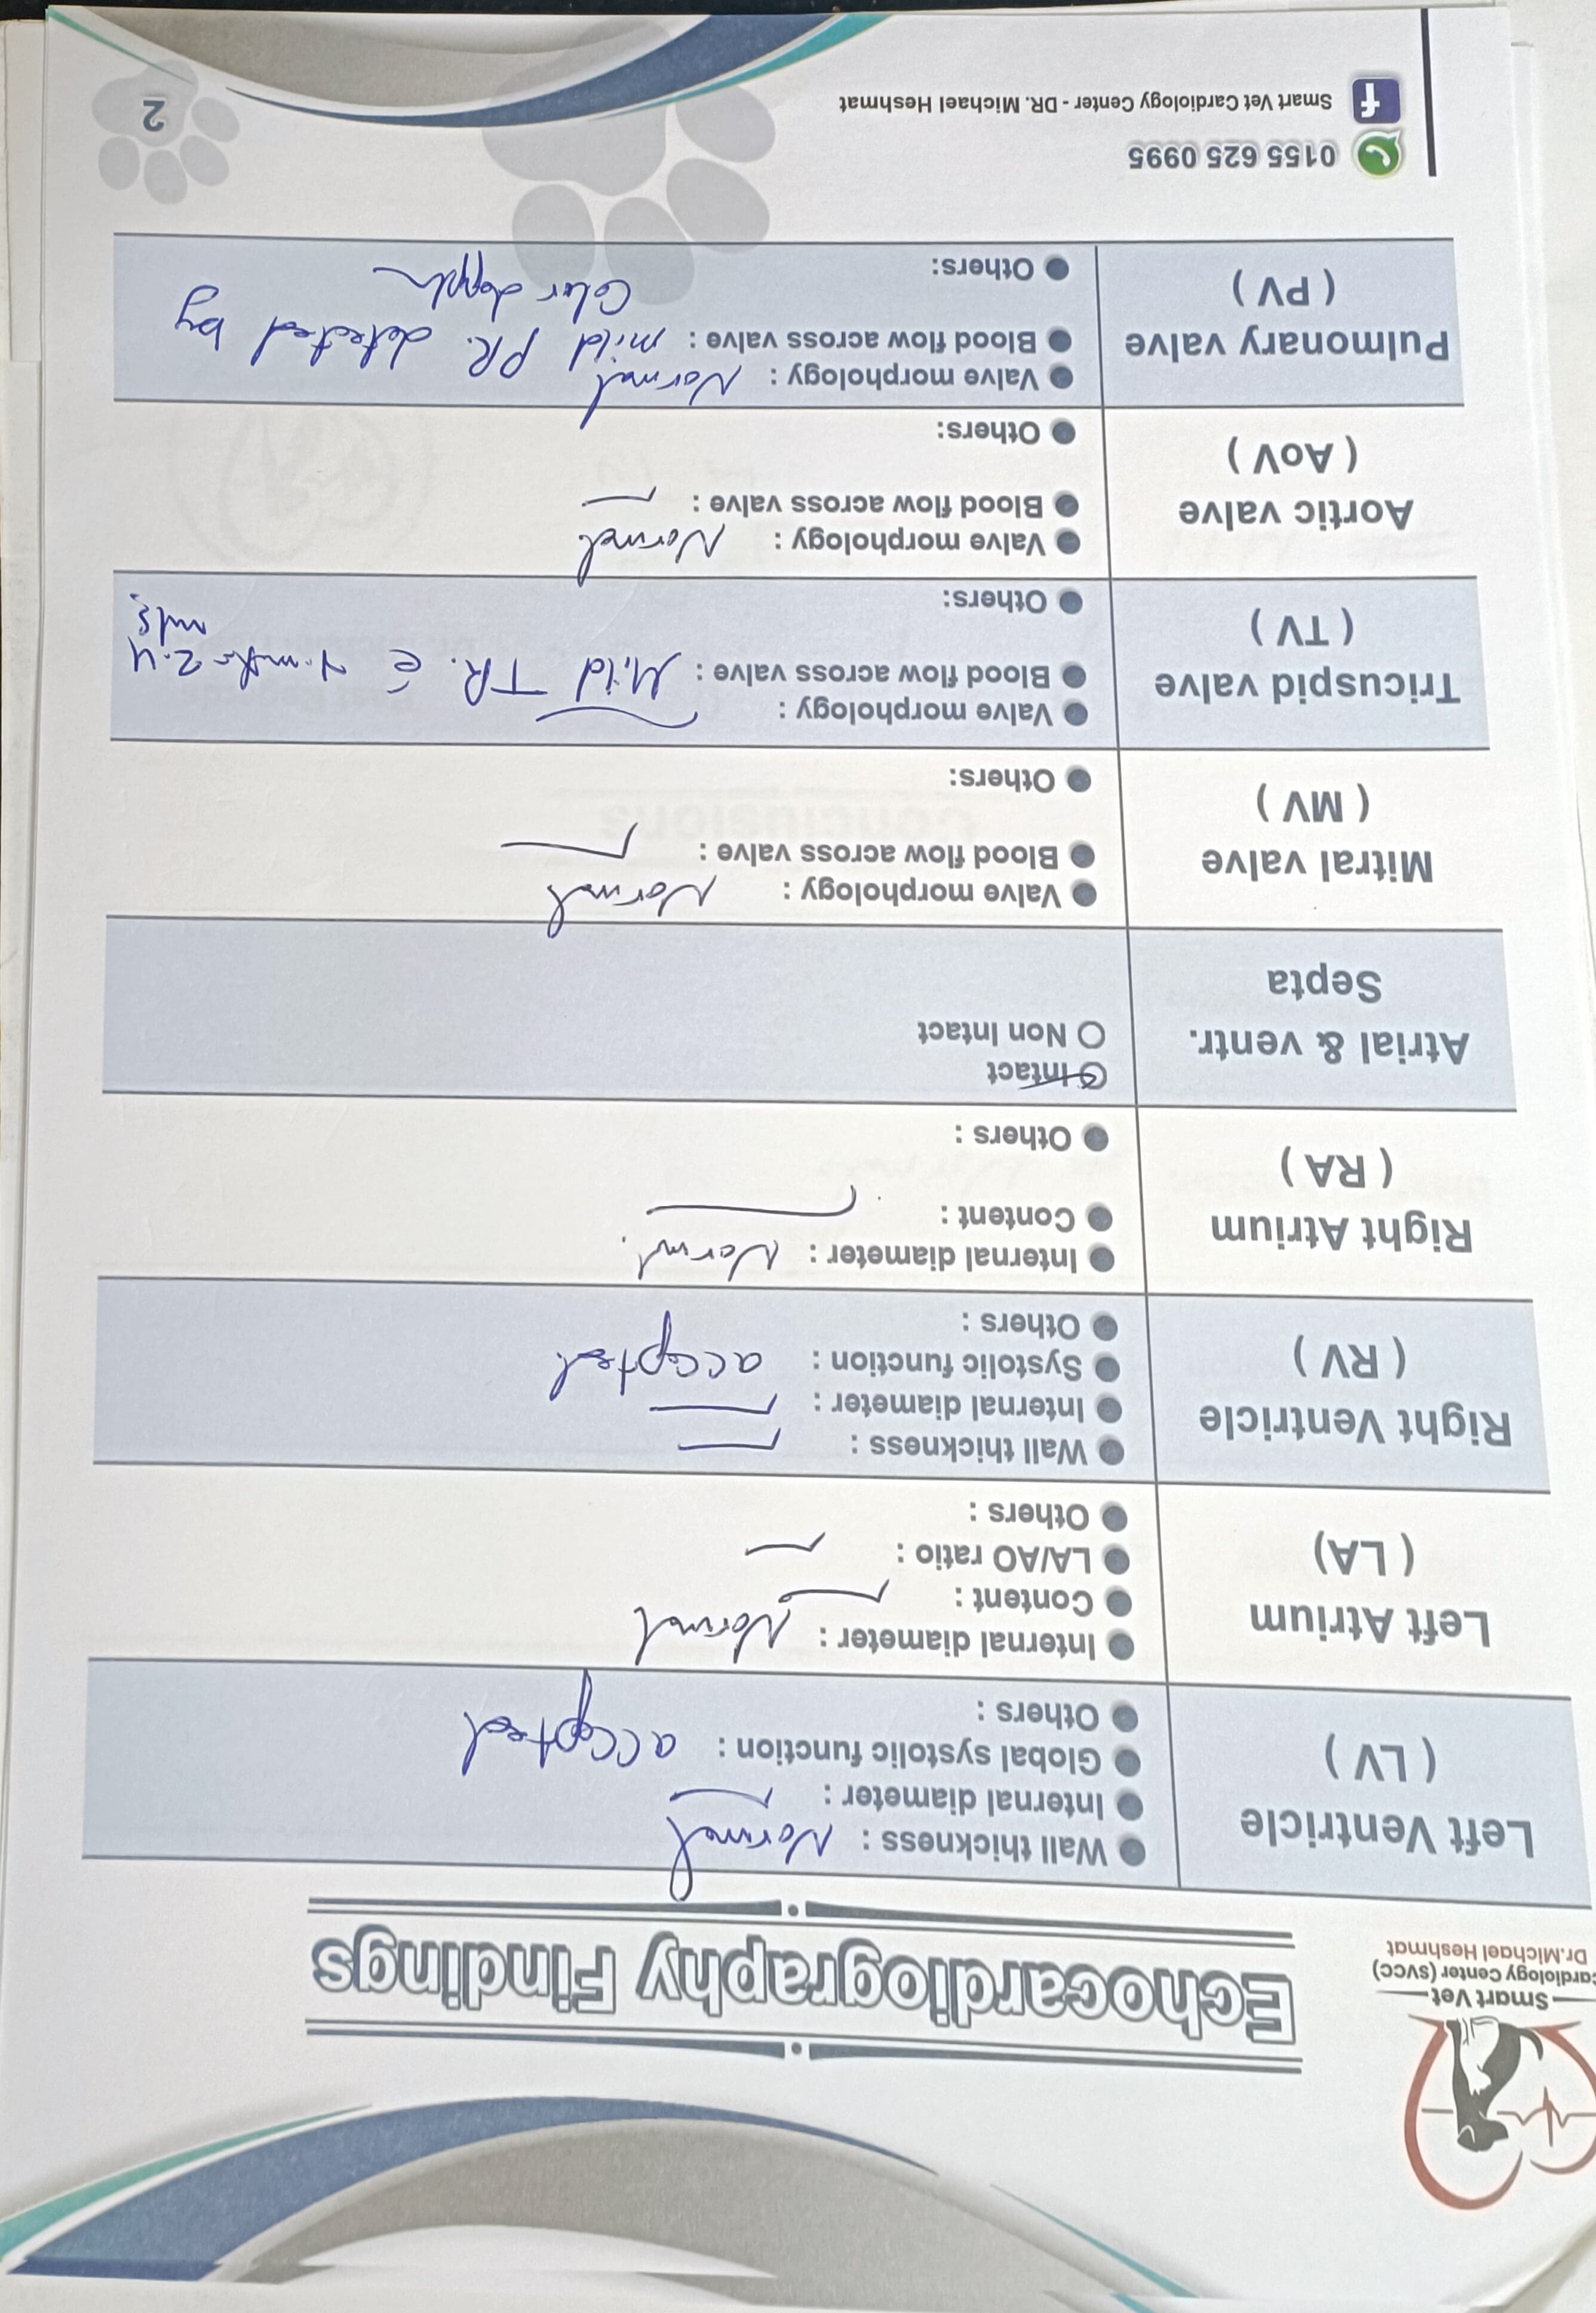 Smart Vet
Cardiology Center (SVCC)
Dr.Michael Heshmat
Echocardiography Findings
Left Ventricle
( LV )
Wall thickness : Normal
Internal diameter :
Global systolic function : accepted
Others :
Left Atrium
( LA)
Internal diameter : Normal
Content :
LA/AO ratio :
Others :
Right Ventricle
( RV )
Wall thickness :
Internal diameter :
Systolic function : accepted
Others :
Right Atrium
( RA )
Internal diameter : Norm.
Content :
Others :
Atrial & ventr.
Septa
Intact
Non Intact
Mitral valve
( MV )
Valve morphology : Normal
Blood flow across valve :
Others:
Tricuspid valve
( TV )
Valve morphology :
Blood flow across valve : Mild TR. c̄ 2.4
m/s
Others:
Aortic valve
( AoV )
Valve morphology : Normal
Blood flow across valve :
Others:
Pulmonary valve
( PV )
Valve morphology : Normal
Blood flow across valve : mild PR. detected by
Color doppler
Others:
0155 625 0995
Smart Vet Cardiology Center - DR. Michael Heshmat
2